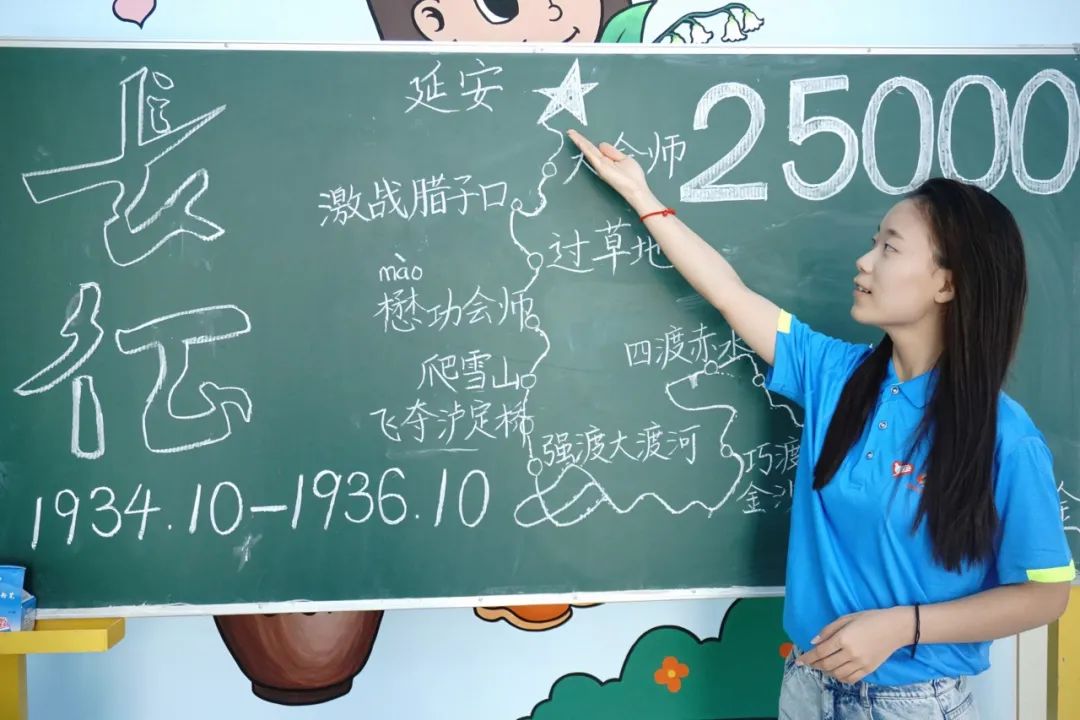 长征
1934.10-1936.10
延安
25000
会师
激战腊子口
过草地
mào
懋功会师
爬雪山
四渡赤水
飞夺泸定桥
强渡大渡河
巧渡
金沙